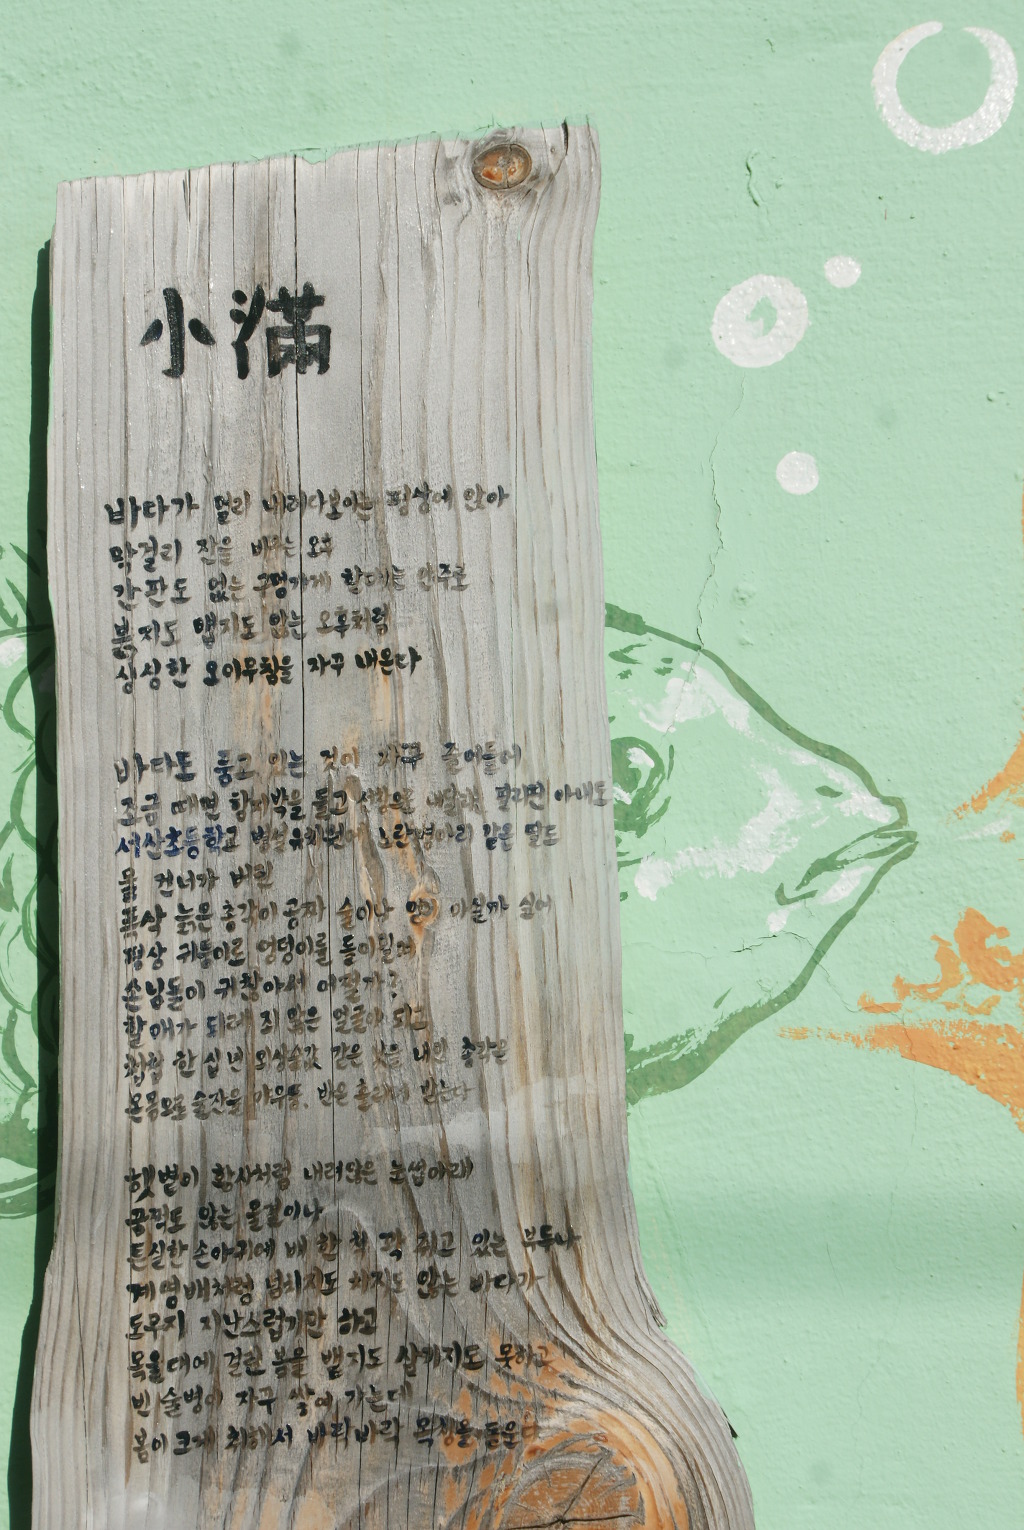 小滿
바다가 멀리 내려다보이는 평상에 앉아
막걸리 잔을 비우는 오후
간판도 없는 구멍가게 할매는 안주로
붉지도 맵지도 않는 오후처럼
싱싱한 오이무침을 자꾸 내온다
바다도 물고 있는 것이 자꾸 줄어들어
조금 때면 함지박을 들고 내달리던 아내도
서산초등학교 병설유치원에 노란병아리 같은 딸도
물 건너가 버린
폭삭 늙은 총각이 공짜 술이나 얻어 마실까 싶어
평상 귀퉁이로 엉덩이를 들이밀며
손님들이 귀찮아서 어쩔까?
할매가 되레 죄 많은 얼굴이 되고
한 십 년 외상술값 같은 낯을 내민 총각은
온몸으로 술잔을 반은 흘려서 받는다
햇볕이 황사처럼 내려앉은 눈썹아래
꿈쩍도 않는 물결이나
튼실한 손아귀에 배 한 척 꽉 쥐고 있는 부두나
계영배처럼 넘치지도 치지도 않는 바다가
도무지 지난스럽기만 하고
목울대에 걸린 봄을 뱉지도 삼키지도 못하고
빈 술병이 자꾸 쌓여 가는데
봄이 크게 취해서 바락바락 목청을 돋운다